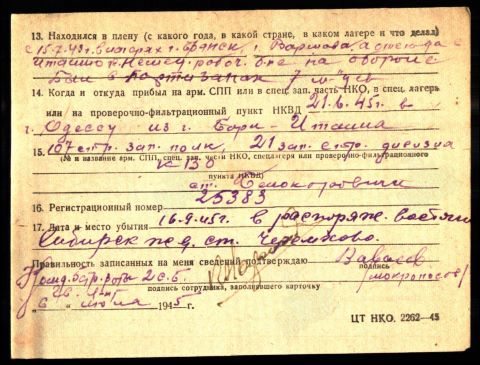 13. Находился в плену (с какого года, в какой стране, в каком лагере и что делал)
с 15.7.43 г. в лагерях г. Брянск, г. Варшава, а отсюда в
Италию
был в партизанах 7 м-цев
14. Когда и откуда прибыл на арм. СПП или в спец. зап. часть НКО, в спец. лагерь
или на проверочно-фильтрационный пункт НКВД 21.6.45 г. в
г. Одессу из г. Бари - Италия
15. 107 стр. зап. полк, 21 зап. стр. дивизия
(№ и название арм. СПП, спец. зап. части НКО, спецлагеря или проверочно-фильтрационного
К 130
пункта НКВД)
ст.
16. Регистрационный номер 25383
17. Дата и место убытия 16.9.45 г. в распоряж.
Сибирск ж д. ст. Черемхово.
Правильность записанных на меня сведений подтверждаю
подпись
Ком-р 2 стр. роты 2 с. б.
подпись сотрудника, заполнившего карточку
6 " июля 1945 г.
ЦТ НКО. 2262—45